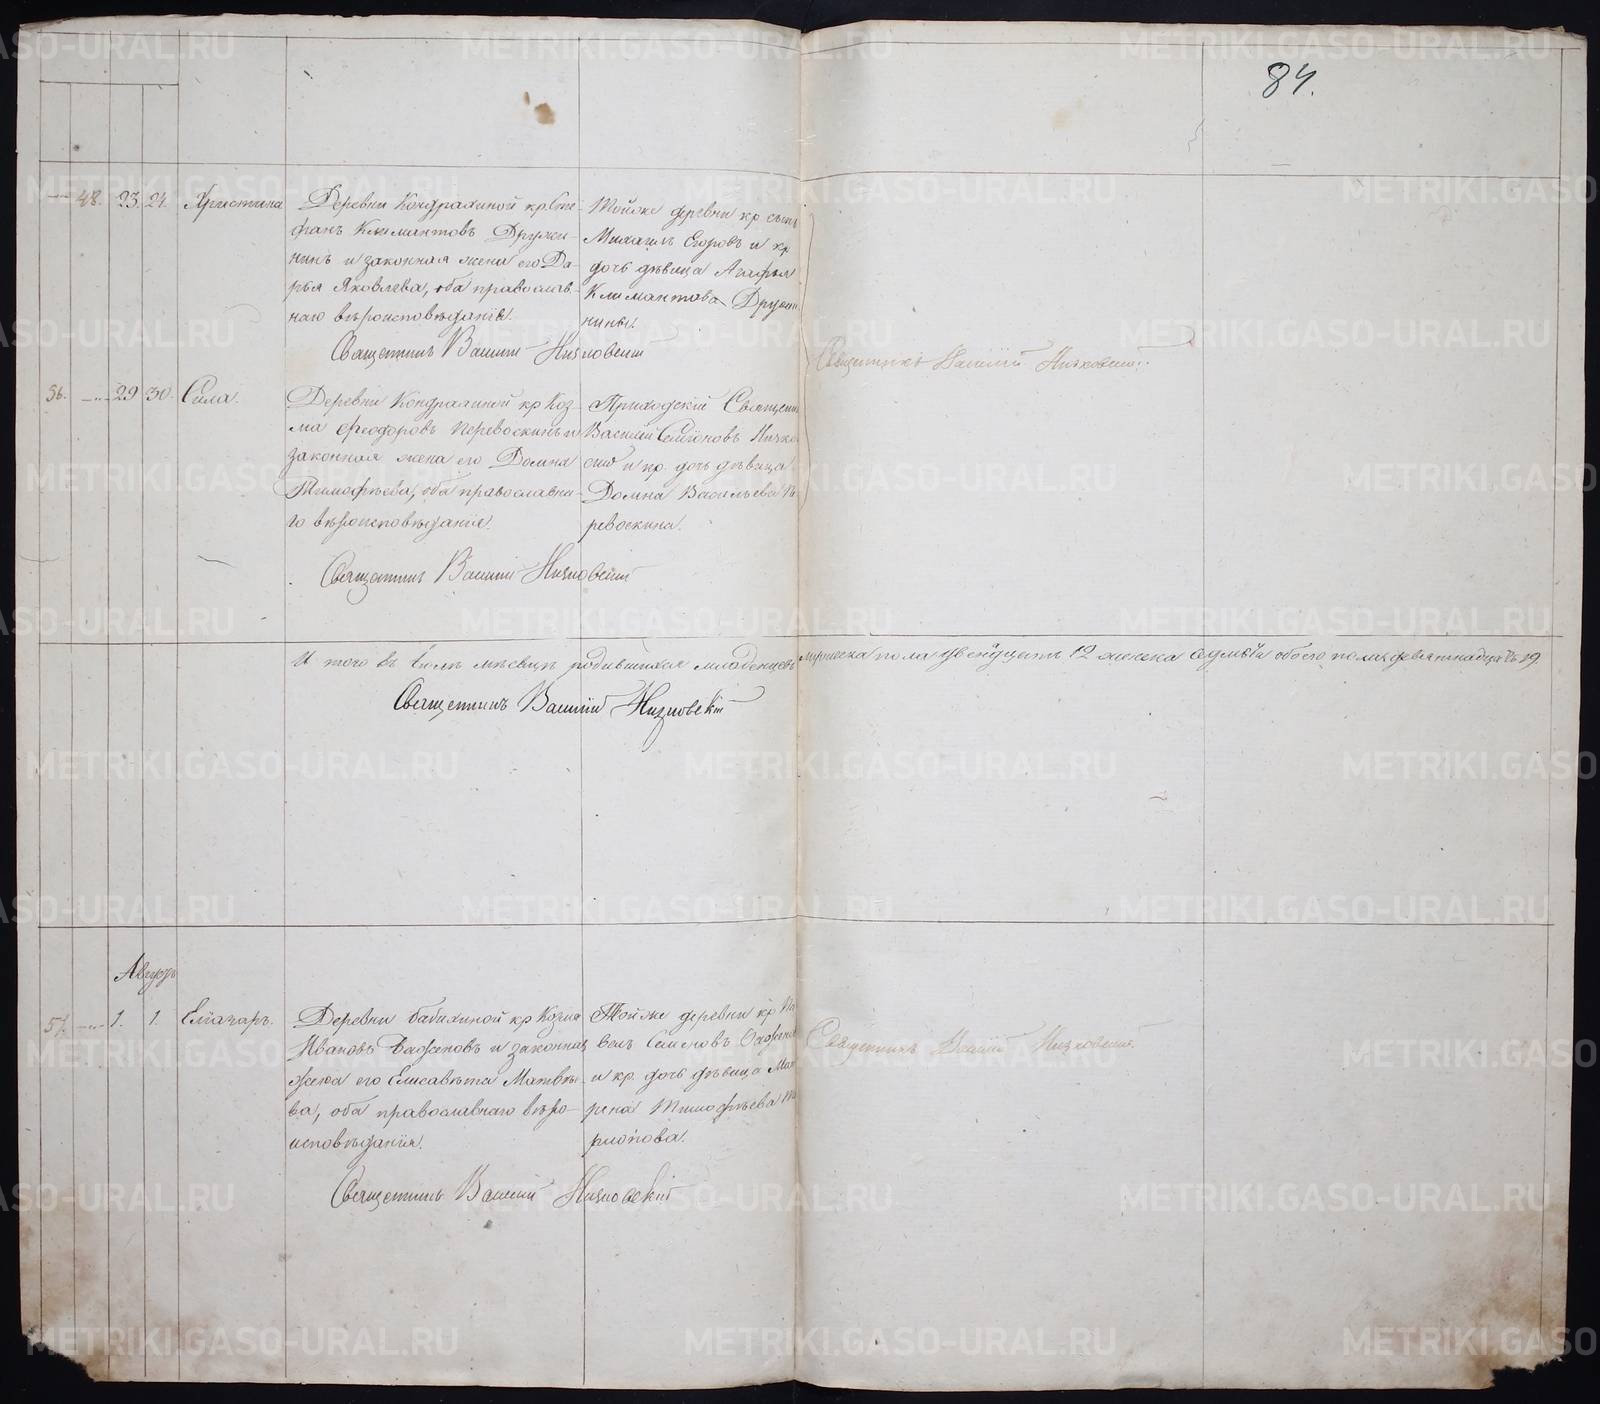 84.
48. 23. 24. Христина
Деревни Кондрахиной кр. Сте-
фанъ Климантовъ Дружи-
нинъ и законная жена его Да-
рья Яковлева, оба православ-
наго вѣроисповѣданія.
Тойже деревни кр. сынъ
Михаилъ Егоровъ и кр.
дочь дѣвица Агафья
Климантова Дружи-
нины.
Священникъ Василій Низковскій
Священникъ Василій Низковскій
56. 29 30. Сила.
Деревни Кондрахиной кр. Коз-
ма Феодоровъ Перевоскинъ и
законная жена его Домна
Тимофѣева, оба православна-
го вѣроисповѣданіе.
Приходскій Священн
Василій Симеоновъ Низко
скій и кр. дочь дѣвица
Домна Васильева Пе-
ревоскина.
Священникъ Василій Низковскій
И того въ Іюлѣ мѣсяцѣ родившихся младенцевъ мужеска пола двенадцать 12 женска седмь 7 и обоего пола девятнадцать 19.
Священникъ Василій Низковскій
Августъ
57. 1. 1. Елїазаръ.
Деревни Бабихиной кр. Козма
Ивановъ Бажѣновъ и законная
жена его Елисавета Матвѣе-
ва, оба православнаго вѣро-
исповѣданія.
Тойже деревни кр. Па
велъ Семеновъ Бажѣно
и кр. дочь дѣвица Ма
рена Тимофѣева
рпопова.
Священникъ Василій Низковскій
Священникъ Василій Низковскій
METRIKI.GASO-URAL.RU